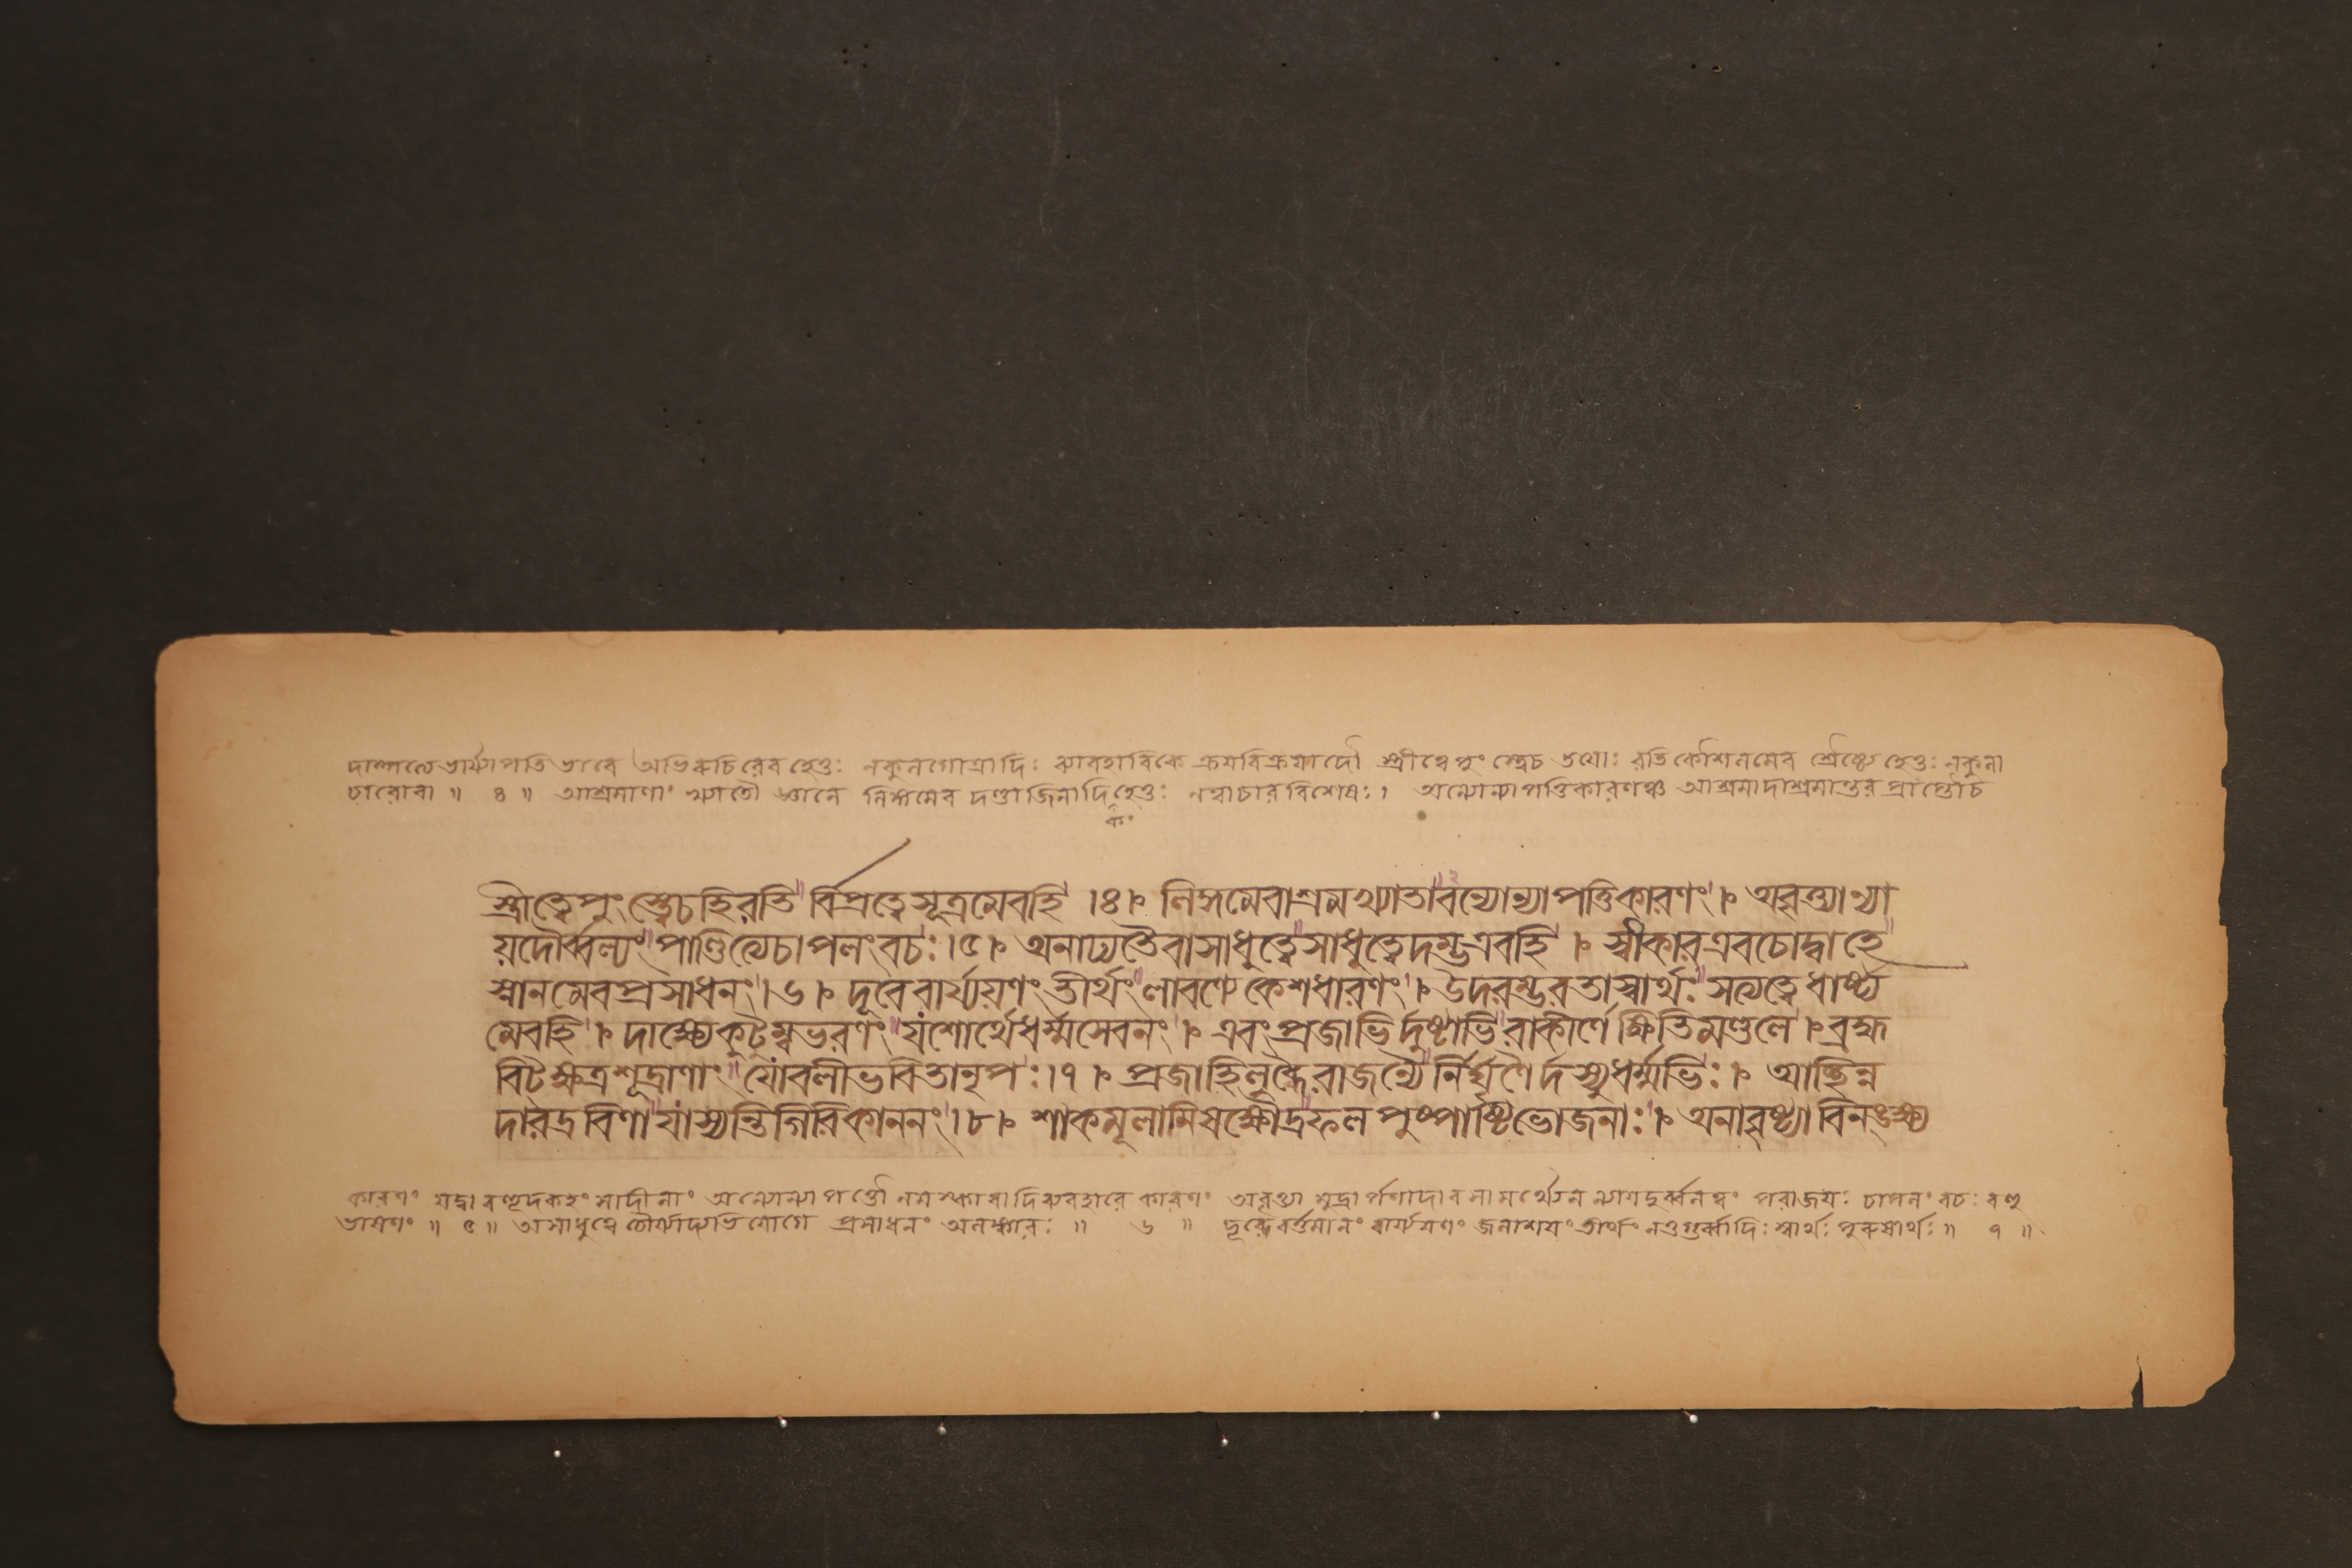 দাম্পত্যে ভার্য্যাপতিভাবে অভিরুচিরেব হেতুঃ নকুলগোত্রাদিঃ ব্যাবহারিকে ক্রয়বিক্রয়াদৌ স্ত্রীত্বেপুংস্ত্বেচ তয়োঃ রতিকৌশলমেব শ্রৈষ্ঠ্যে হেতুঃ নকুলা
চারোবা ॥ ৪ ॥ আশ্রমাণাং খ্যাতৌ জ্ঞানে লিঙ্গমেব দণ্ডাজিনাদিহেতুঃ নত্বাচারবিশেষঃ। অন্যোন্যাপত্তিকারণঞ্চ আশ্রমাদাশ্রমান্তর প্রাপ্তৌচ
কং
স্ত্রীত্বেপুংস্ত্বেচহিরতি র্বিপ্রত্বেসূত্রমেবহি ।৪। লিঙ্গমেবাশ্রমখ্যাতাবন্যোন্যাপত্তিকারণং। অবৃত্ত্যান্যা
য়দৌর্ব্বল্যং পাণ্ডিত্যেচাপলংবচঃ।৫। অনাঢ্যতৈবাসাধুত্বেসাধুত্বেদম্ভএবহি । স্বীকারএবচোদ্বাহে
স্নানমেবপ্রসাধনং।৬। দূরেবার্য্যয়ণংতীর্থং লাবণ্যেকেশধারণং। উদরম্ভরতাস্বার্থঃ সত্যত্বেধার্ষ্ট্য
মেবহি। দাক্ষ্যেকুটুম্বভরণং যশোর্থেধর্ম্মসেবনং । এবংপ্রজাভির্দুষ্টাভিরাকীর্ণেক্ষিতিমণ্ডলে। ব্রহ্ম
বিট্ক্ষত্রশূদ্রাণাং যোবলীভবিতানৃপঃ।৭। প্রজাহিলুব্ধৈরাজন্যৈর্নির্ঘৃণৈর্দস্যুধর্ম্মভিঃ। আচ্ছিন্ন
দারদ্রবিণাযাস্যন্তিগিরিকাননং।৮। শাকমূলামিষক্ষৌদ্রফলপুষ্পাষ্টিভোজনাঃ। অনাবৃষ্ট্যাবিনঙ্ক্ষ্য
কারণং যদ্বা অন্যোন্যাপত্তৌ নমস্কারাদিব্যবহারে কারণং অবৃত্ত্যা মুদ্রার্পণাদাবসামর্থ্যেন ন্যায়দুর্ব্বলত্বং পরাজয়ঃ চাপলং বচঃ বহু
ভাষণং ॥ ৫ ॥ অসাধুত্বে চৌর্য্যাদ্যভিযোগে প্রসাধনং অলঙ্কারঃ ॥ ৬ ॥ দূরেবর্ত্তমানং বার্য্যয়ণং জলাশয়ংতীর্থং নতুগুর্ব্বাদিঃ স্বার্থঃ পুরুষার্থঃ ॥ ৭ ॥